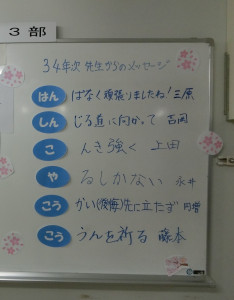 3部
34年次 先生からのメッセージ
はん ばなく頑張りましたね! 三原
しん じる道に向かって 吉岡
こ んき強く 上田
や るしかない 永井
こう かい(後悔)先に立たず 円増
こう うんを祈る 藤本